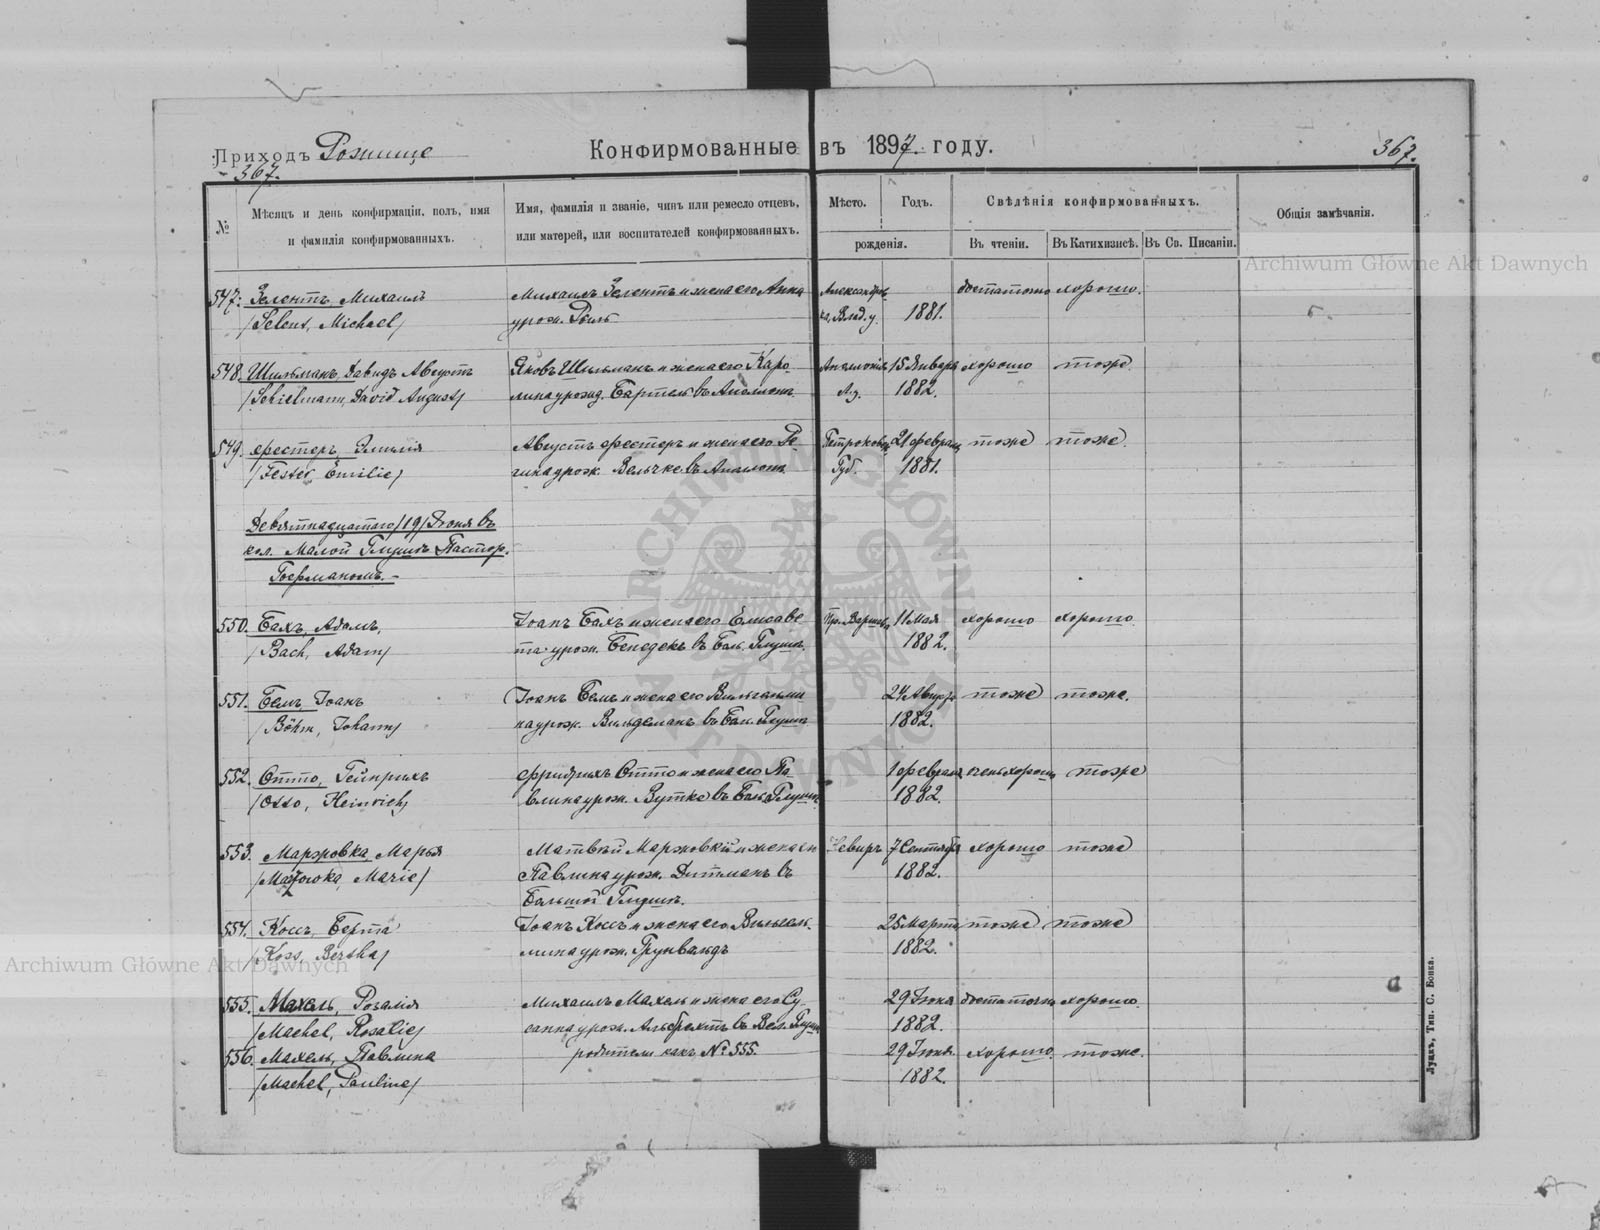 Приходъ Рожище
Конфирмованные въ 1897. году.
367.
367.
№
Мѣсяцъ и день конфирмаціи, полъ, имя
и фамилія конфирмованныхъ.
Имя, фамилія и званіе, чинъ или ремесло отцевъ,
или матерей, или воспитателей конфирмованныхъ.
Мѣсто.
Годъ.
рожденія.
Свѣдѣнія конфирмованныхъ.
Въ чтеніи.
Въ Катихизисѣ.
Въ Св. Писаніи.
Общія замѣчанія.
547. Зелентъ Михаилъ
/Selent, Michael/
Михаилъ Зелентъ и жена его Анна
урож.
Александров.
кл. Влад. у.
1881.
достаточно хорошо.
548. Шильманъ, Давидъ Августъ
/Schielmann, David August/
Яковъ Шильманъ и жена его Каро
лина урожд. Бартель въ
15 Января
1882.
хорошо тоже
549. Фестеръ, Эмилія
/Fester, Emilie/
Августъ Фестеръ и жена его Ре
гина урож. въ
Петроковск.
Губ.
21 Февраля
1881.
тоже тоже
Девятнадцатаго /19/ Іюня въ
кол. Малой Глушѣ Пастор.
550. Бахъ, Адамъ,
/Bach, Adam/
Іоанъ Бахъ и жена его Елисаве
та урож. Бенедекъ въ Бол. Глушѣ.
11 Мая
1882.
хорошо хорошо.
551. Бемъ, Іоанъ
/Böhm, Johann/
Іоанъ Бемъ и жена его Вильгельми
на урож. Вильдеманъ въ Бол. Глушѣ
24 Августа
1882.
тоже тоже.
552. Отто, Гейнрихъ
/Otto, Heinrich/
Фридрихъ Отто и жена его Па
влина урож. Вутке въ Бол. Глушѣ
1 Февраля
1882.
очень хорошо тоже
553. Маржовка, Марья
/Marzowka, Marie/
Матвѣй Маржовкій и жена его
Павлина урож. Дитманъ въ
Большой Глушѣ.
Невиръ
7 Сентября
1882.
хорошо тоже
554. Коссъ, Берта
/Koss, Bertha/
Іоанъ Коссъ и жена его Вильгель.
мина урож. Грунвальдъ
25 Марта
1882.
тоже тоже
555. Махель, Розалія
/Machel, Rosalie/
Михаилъ Махель и жена его Су-
санна урож. Альбрехтъ въ Бол. Глушѣ
29 Іюня
1882.
достаточно хорошо.
556. Махель, Павлина
/Machel, Pauline/
родители какъ № 555.
29 Іюня.
1882.
хорошо. тоже.
Луцкъ, Тип. С. Бонка.
Archiwum Główne Akt Dawnych
Archiwum Główne Akt Dawnych
ARCHIWUM GŁÓWNE AKT DAWNYCH